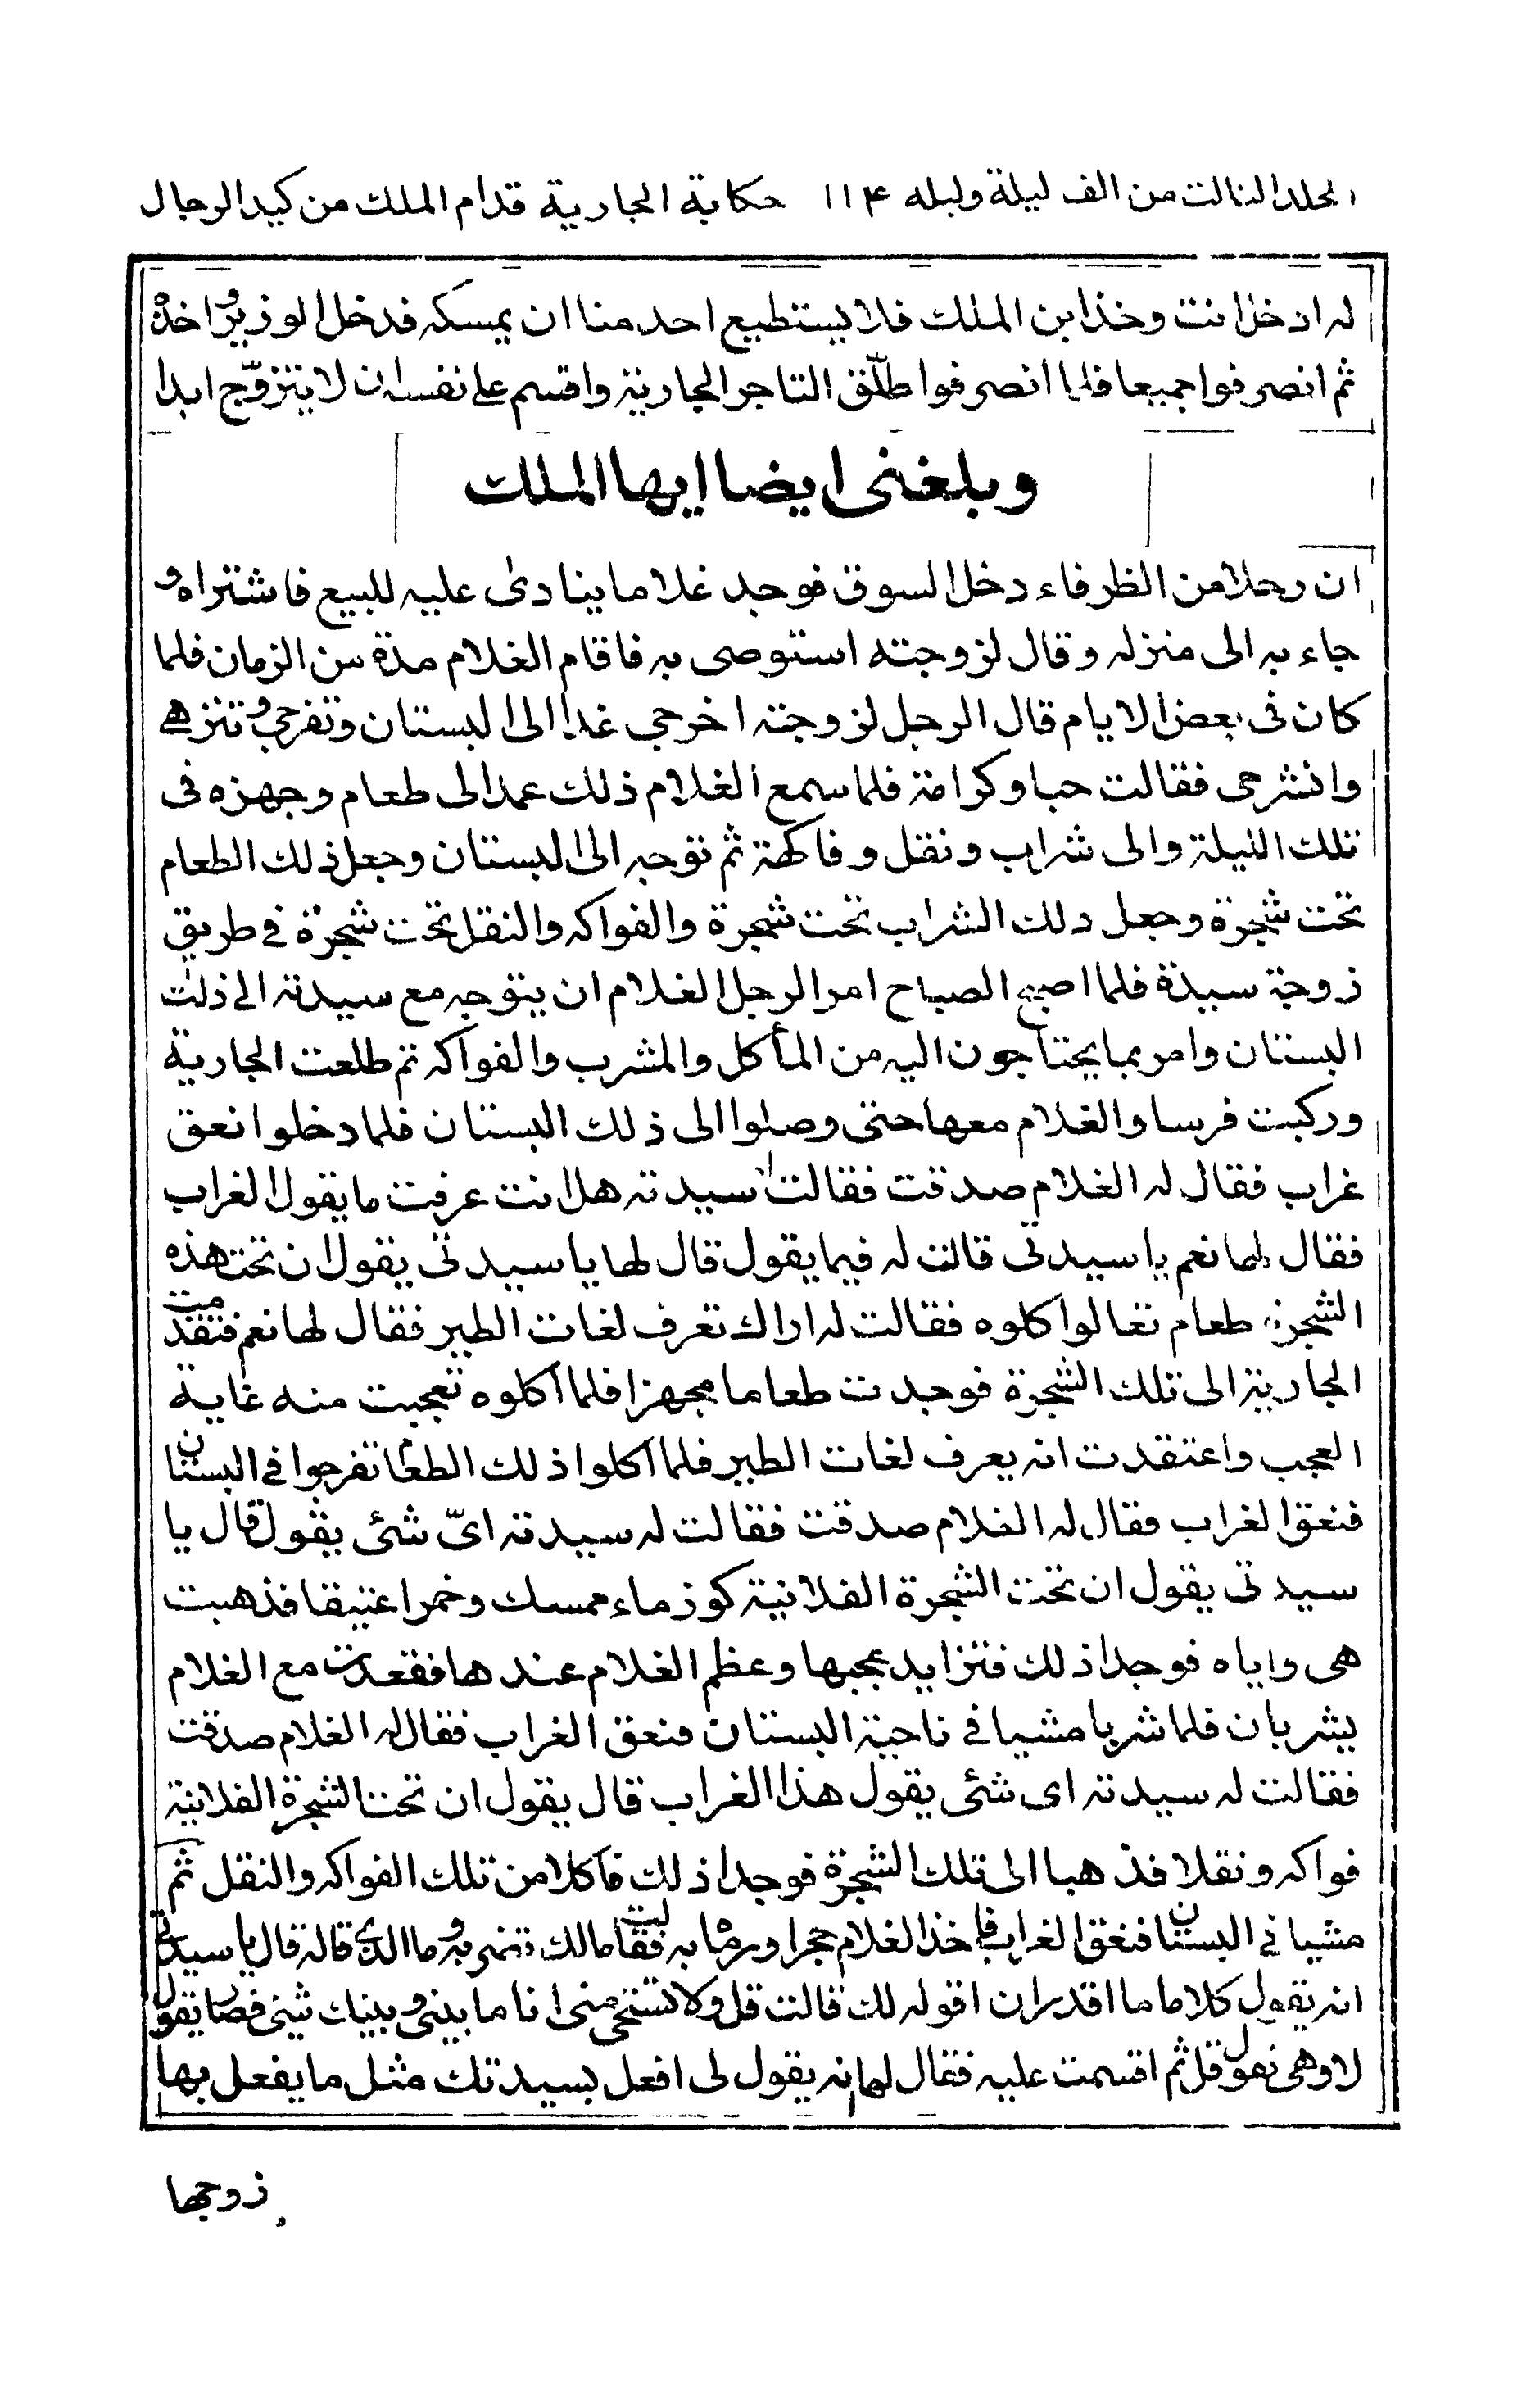 المجلد الثالث من الف ليلة وليله ١١۴ حكاية الجارية قدام الملك من كيد الرجال
له ادخل انت وخذ ابن الملك فلا يستطيع احد منا ان يمسكه فدخل الوزير واخذه
ثم انصرفوا جميعا فلما انصرفوا طلّق التاجر الجارية واقسم على نفسه ان لا يتزوّج ابدا
وبلغنى ايضا ايها الملك
ان رجلا من الظرفاء دخل السوق فوجد غلاما ينادى عليه للبيع فاشتراه و
جاء به الى منزله وقال لزوجته استوصى به فاقام الغلام مدة من الزمان فلما
كان فى بعض الايام قال الرجل لزوجته اخرجى غدا الى البستان وتفرجى وتنزهى
وانشرحى فقالت حبا وكرامة فلما سمع الغلام ذلك عمد الى طعام وجهزه فى
تلك الليلة والى شراب ونقل وفاكهة ثم توجه الى البستان وجعل ذلك الطعام
تحت شجرة وجعل ذلك الشراب تحت شجرة والفواكه والنقل تحت شجرة فى طريق
زوجة سيدة فلما اصبح الصباح امر الرجل الغلام ان يتوجه مع سيدته الى ذلك
البستان وامر بما يحتاجون اليه من المأكل والمشرب والفواكه ثم طلعت الجارية
وركبت فرسا والغلام معها حتى وصلوا الى ذلك البستان فلما دخلوا نعق
غراب فقال له الغلام صدقت فقالت له سيدته هل انت عرفت ما يقول الغراب
فقال لها نعم يا سيدتى قالت له فيما يقول قال لها يا سيدتى يقول ان تحت هذه
الشجرة طعام تعالوا كلوه فقالت له اراك تعرف لغات الطير فقال لها نعم فتقدمت
الجارية الى تلك الشجرة فوجدت طعاما مجهزا فلما اكلوه تعجبت منه غاية
العجب واعتقدت انه يعرف لغات الطير فلما اكلوا ذلك الطعام تفرجوا فى البستان
فنعق الغراب فقال له الغلام صدقت فقالت له سيدته اىّ شئى يقول قال يا
سيدتى يقول ان تحت الشجرة الفلانية كوز ماء ممسك وخمرا عتيقا فذهبت
هى واياه فوجدا ذلك فتزايد عجبها وعظم الغلام عندها فقعدت مع الغلام
يشربان فلما شربا مشيا فى ناحية البستان فنعق الغراب فقال له الغلام صدقت
فقالت له سيدته اى شئى يقول هذا الغراب قال يقول ان تحت الشجرة الفلانية
فواكه ونقلا فذهبا الى تلك الشجرة فوجدا ذلك فاكلا من تلك الفواكه والنقل ثم
مشيا فى البستان فنعق الغراب فاخذ الغلام حجرا ورماه به فقالت مالك تضربه وما الذى قاله قال يا سيدتى
انه يقول كلاما ما اقدر ان اقوله لك قالت قل ولا تستحى منى انا ما بينى وبينك شئى فصار يقول
لا وهى تقول قل ثم اقسمت عليه فقال لها انه يقول لى افعل بسيدتك مثل ما يفعل بها
زوجها